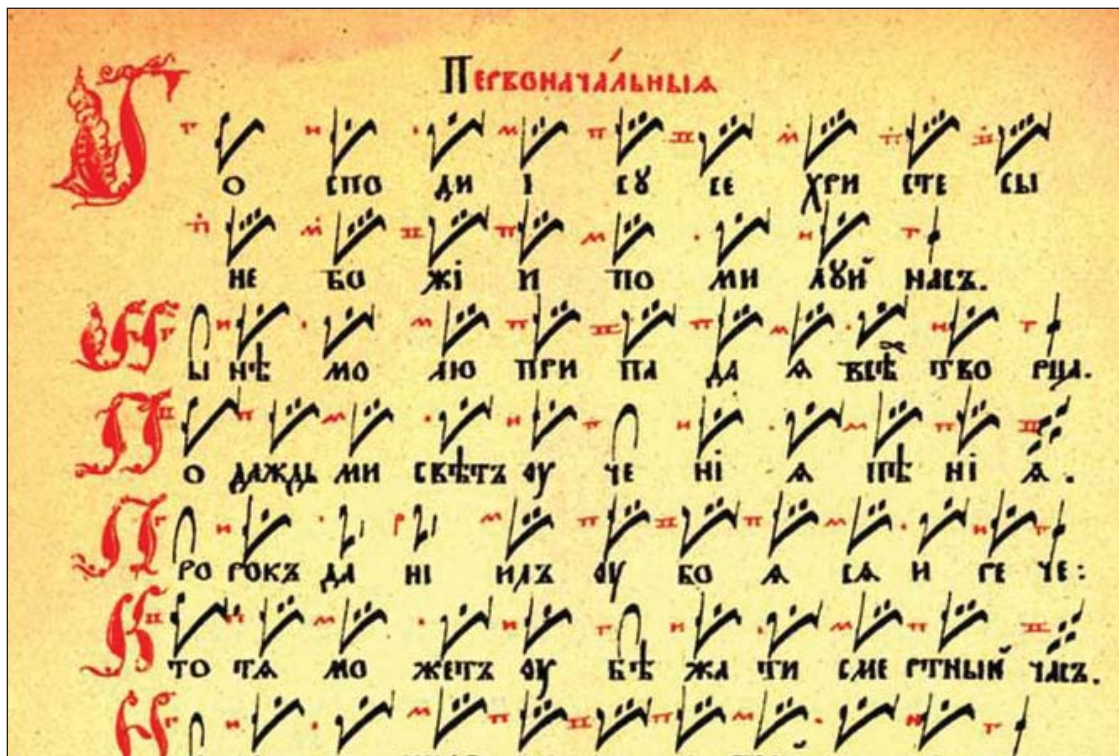 Первонача́льныѧ
Го спо ди І су се Хри сте Сы
не Бо жі и по ми луй насъ.
Ны нѣ мо лю при па да ѧ всѣ тво рца.
По даждь ми свѣтъ ѹ че ні ѧ пѣ ні ѧ́.
Про рокъ Да ні илъ ѹ бо ѧ сѧ и ре че:
Кто тѧ мо жетъ ѹ бѣ жа ти сме ртный ча́съ.